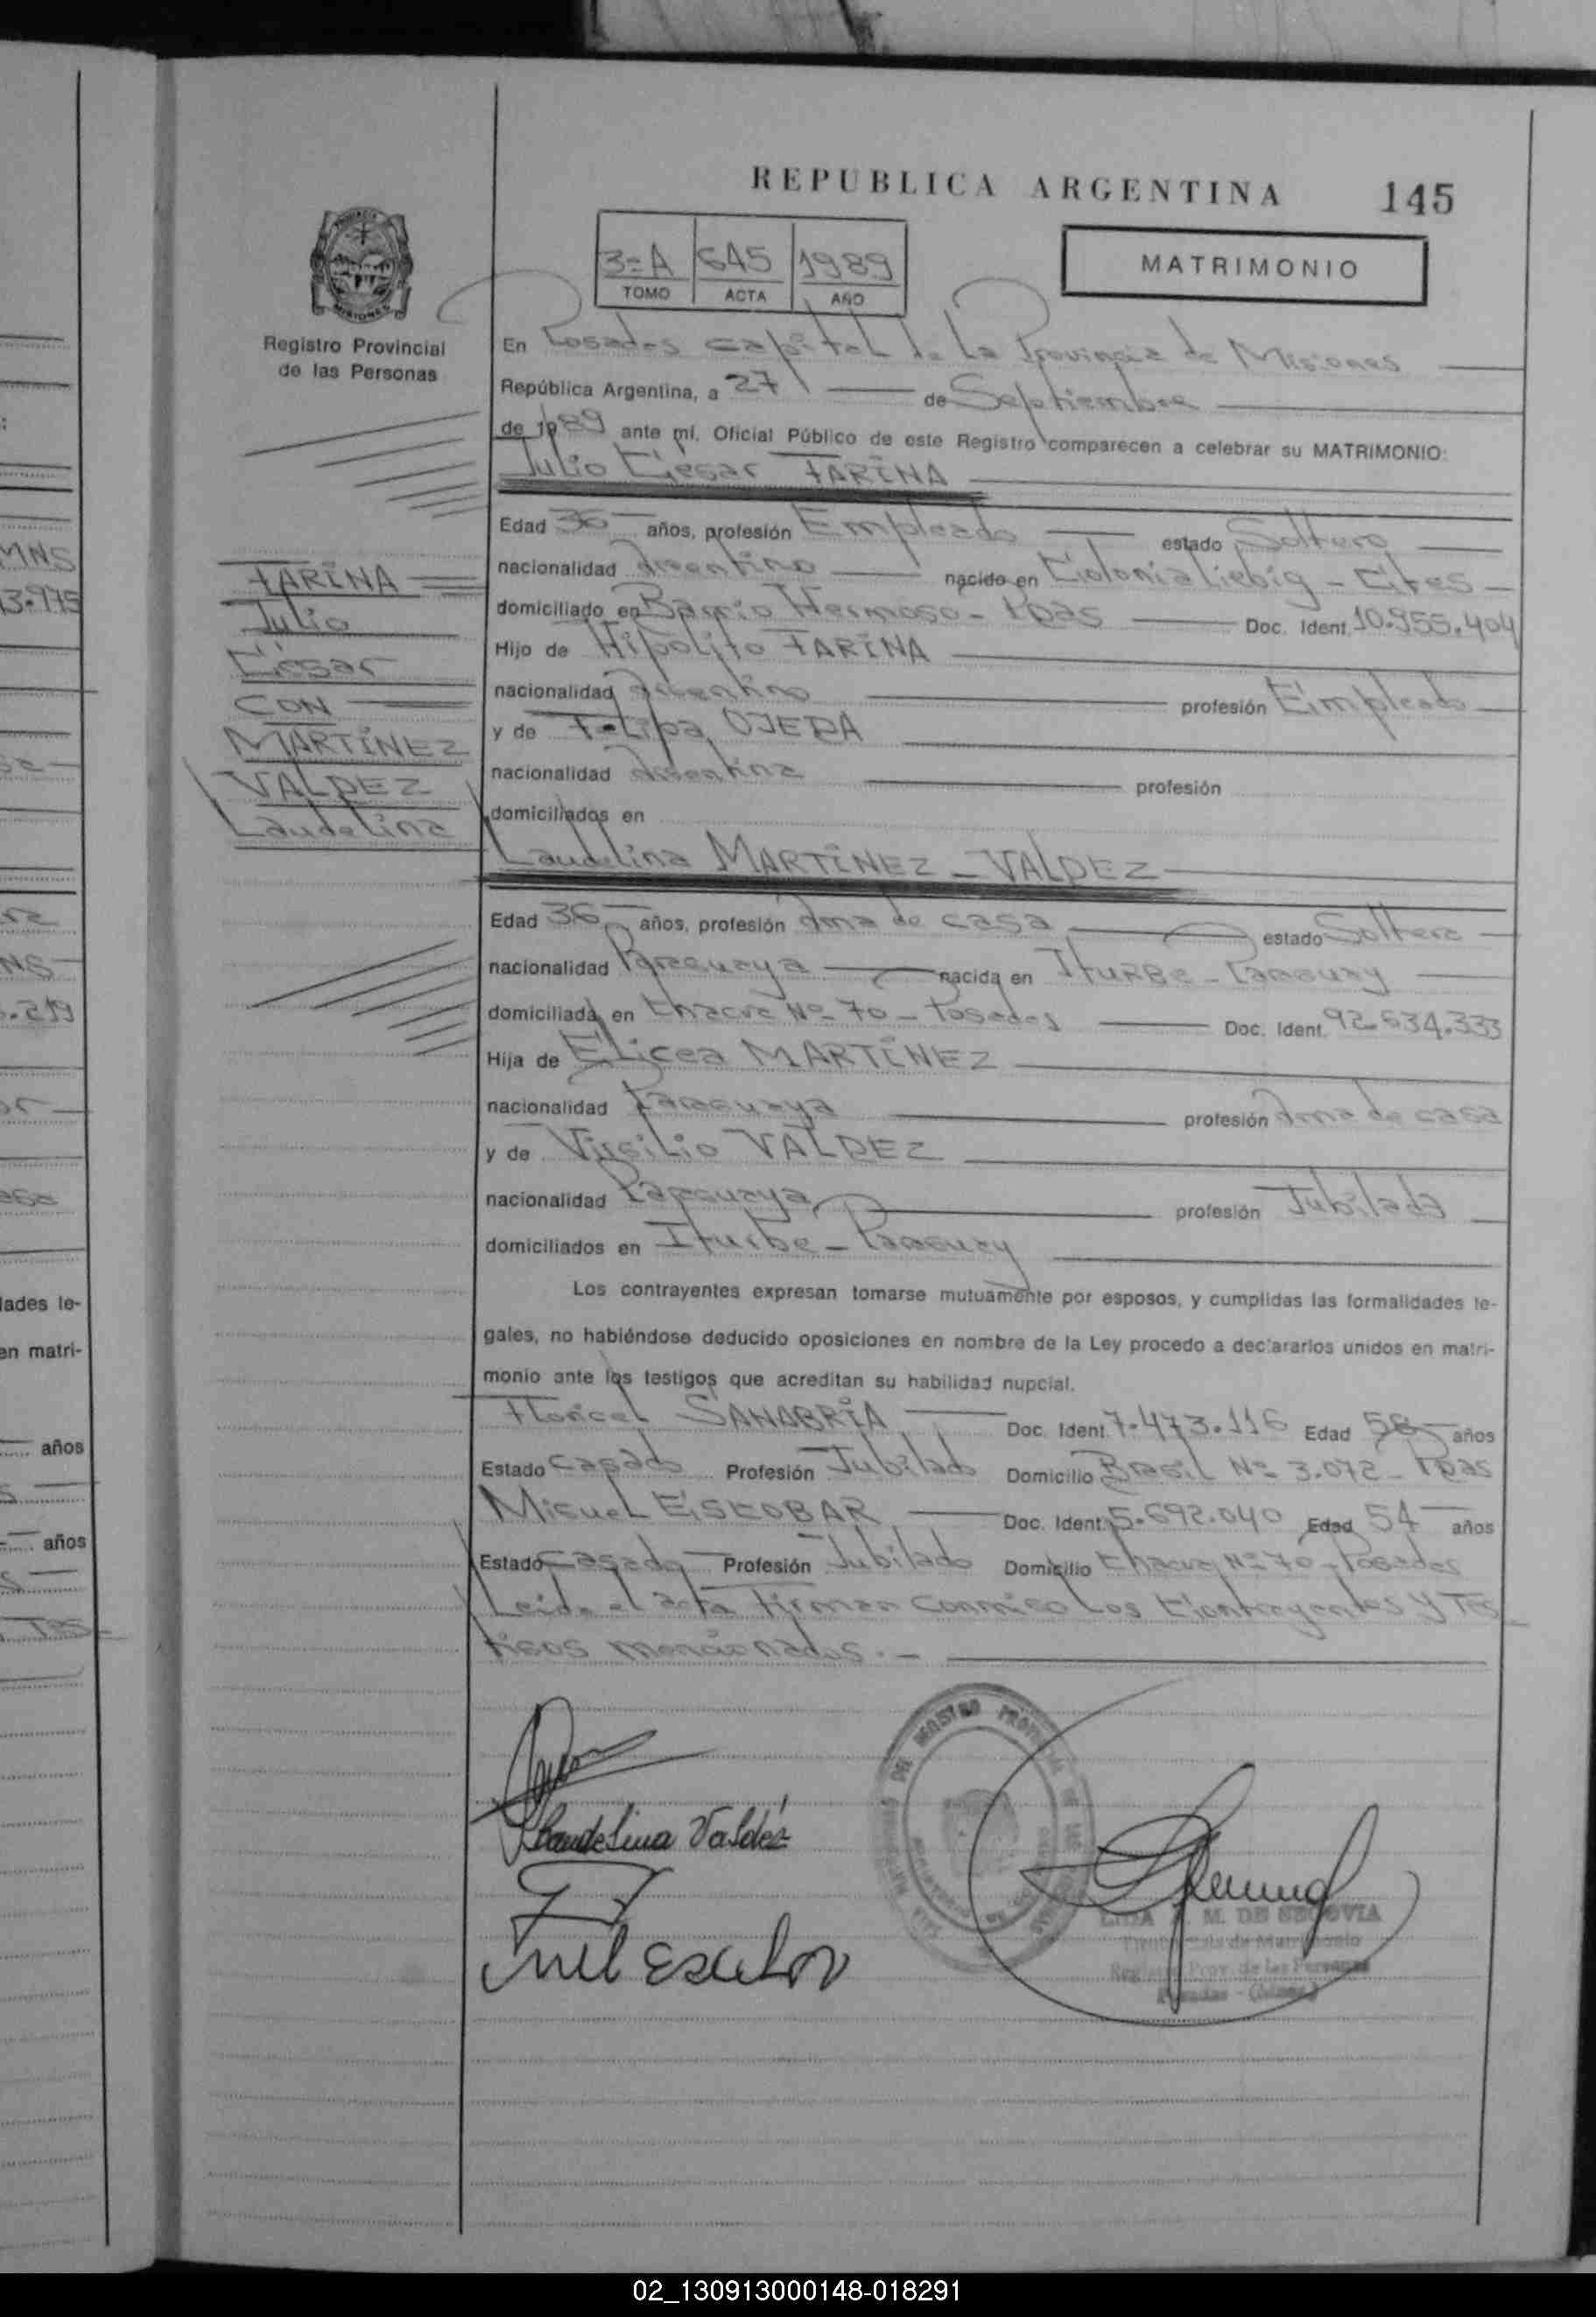 REPUBLICA ARGENTINA 145
3=A 645 1989
TOMO ACTA AÑO
MATRIMONIO
Registro Provincial
de las Personas
En Posadas capital de la Provincia de Misiones
República Argentina, a 27 de Septiembre
de 1989 ante mí, Oficial Público de este Registro comparecen a celebrar su MATRIMONIO:
Julio César FARIÑA
Edad 36 años, profesión Empleado estado Soltero
nacionalidad Argentino nacido en Colonia Liebig - Ctes
domiciliado en Barrio Hermoso - Pdas Doc. Ident. 10.955.404
Hijo de Hipólito FARIÑA
nacionalidad Argentino profesión Empleado
y de Felipa OJEDA
nacionalidad Argentina profesión
domiciliados en
Laudelina MARTÍNEZ - VALDEZ
Edad 36 años, profesión Ama de casa estado Soltera
nacionalidad Paraguaya nacida en Iturbe - Paraguay
domiciliada en Chacra Nº 70 - Posadas Doc. Ident. 92.634.333
Hija de MARTÍNEZ
nacionalidad Paraguaya profesión Ama de casa
y de Virgilio VALDEZ
nacionalidad Paraguaya profesión Jubilada
domiciliados en Iturbe - Paraguay
Los contrayentes expresan tomarse mutuamente por esposos, y cumplidas las formalidades le-
gales, no habiéndose deducido oposiciones en nombre de la Ley procedo a declararlos unidos en matri-
monio ante los testigos que acreditan su habilidad nupcial.
SANABRIA Doc. Ident. 7.473.116 Edad 58 años
Estado Casado Profesión Jubilado Domicilio Brasil Nº 3.072 - Pdas
Miguel ESCOBAR Doc. Ident. 5.692.040 Edad 54 años
Estado Casado Profesión Jubilado Domicilio Chacra Nº 70 - Posadas
Leída el acta firman conmigo los Contrayentes y Tes
tigos mencionados. -
FARIÑA
Julio
César
CON
MARTÍNEZ
VALDEZ
Laudelina
Laudelina Valdéz
LIDA M. DE SEGOVIA
Registro Prov. de las Personas
MNS
3.975
.219
lades le-
en matri-
años
años
02_130913000148-018291